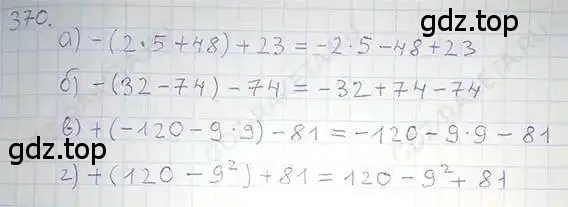 370.
gdz.top
а) -(2·5+48)+23=-2·5-48+23
б) -(32-74)-74=-32+74-74
в) +(-120-9·9)-81=-120-9·9-81
gdz.top
г) +(120-9²)+81=120-9²+81
gdz.top